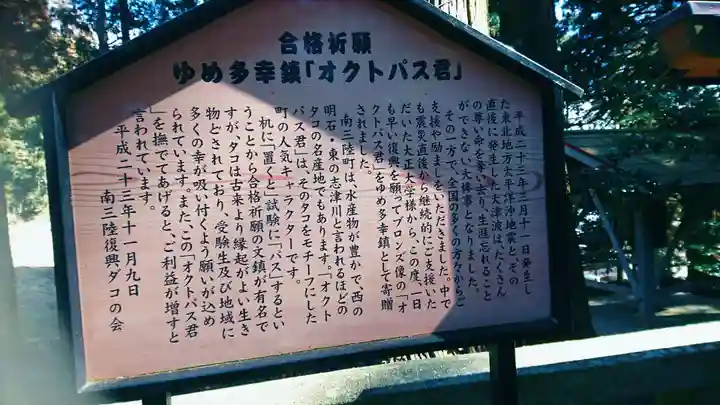 合格祈願
ゆめ多幸鎮「オクトパス君」
平成二十三年三月十一日発生し
た東北地方太平洋沖地震と、その
直後に発生した大津波は、たくさん
の尊い命を奪い去り、生涯忘れること
ができない大惨事となりました。
その一方で、全国の多くの方々からご
支援や励ましをいただきました。中で
も震災直後から継続的にご支援いた
だいた大正大学様から、この度、一日
も早い復興を願ってブロンズ像の「オ
クトパス君」をゆめ多幸鎮として寄贈
されました。
南三陸町は、水産物が豊かで、西の
明石・東の志津川と言われるほどの
タコの名産地でもあります。「オクト
パス君」は、そのタコをモチーフにした
町の人気キャラクターです。
机に「置くと」試験に「パス」するとい
うことから合格祈願の文鎮が有名で
すが、タコは古来より縁起がよい生き
物とされており、受験生及び地域に
多くの幸が吸い付くよう願いが込め
られています。また、この「オクトパス君
」を撫でてあげると、ご利益が増すと
言われています。
平成二十三年十一月九日
南三陸復興タコの会